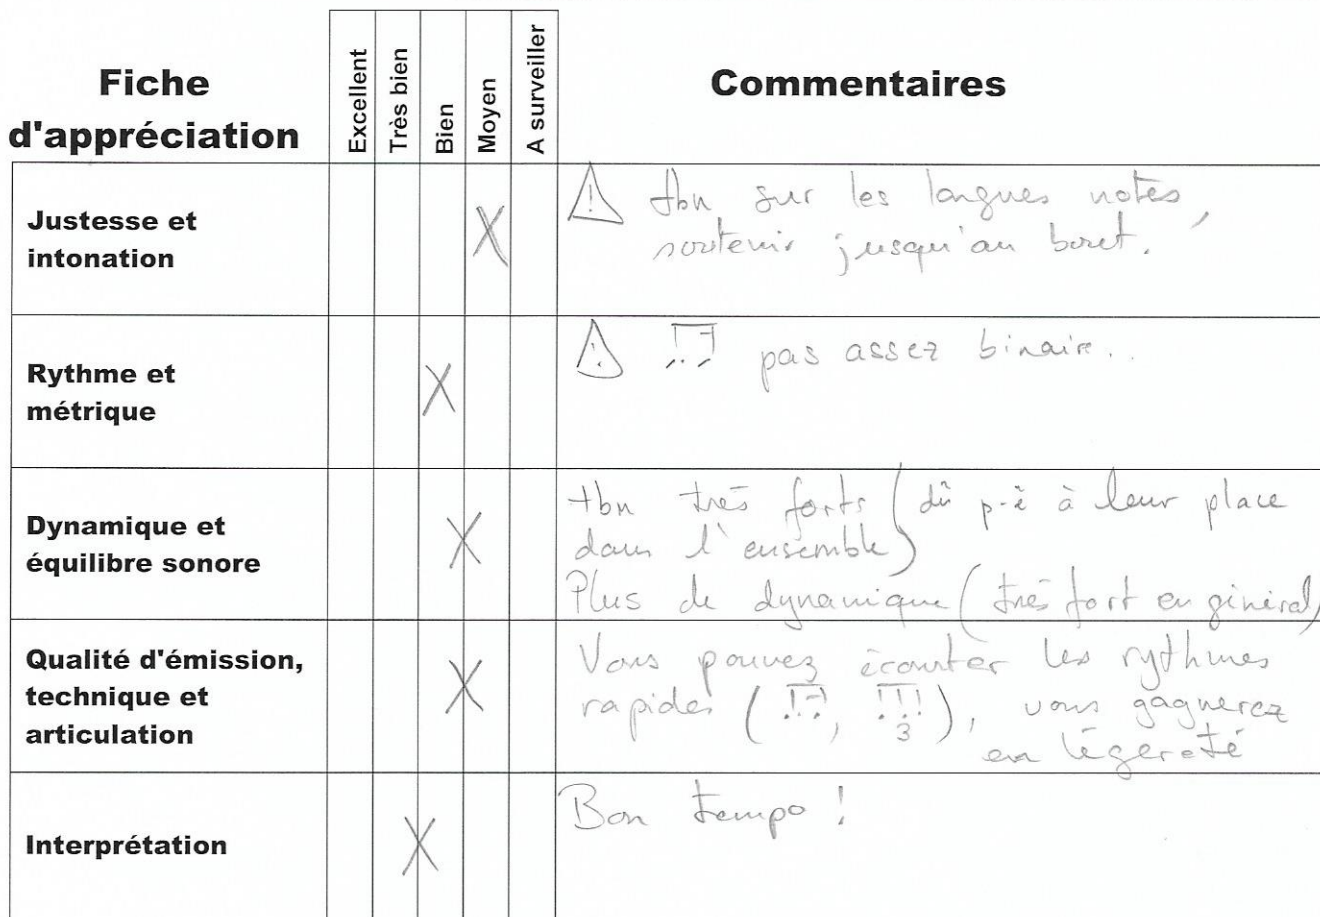 Fiche
d'appréciation
Excellent
Très bien
Bien
Moyen
A surveiller
Commentaires
Justesse et
intonation
X
⚠ tbn sur les longues notes,
soutenir jusqu'au bout.
Rythme et
métrique
X
⚠ pas assez binaire..
Dynamique et
équilibre sonore
X
tbn très forts (dû p-ê à leur place
dans l'ensemble)
Plus de dynamique (très fort en général)
Qualité d'émission,
technique et
articulation
X
Vous pouvez écourter les rythmes
rapides ( , 3 ), vous gagnerez
en légereté
Interprétation
X
Bon tempo !